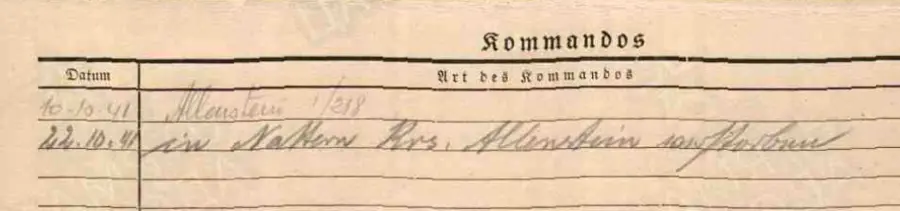 Kommandos
Datum Art des Kommandos
10.10.41 Allenstein 1/218
22.10.41 in Nattern Krs. Allenstein verstorben